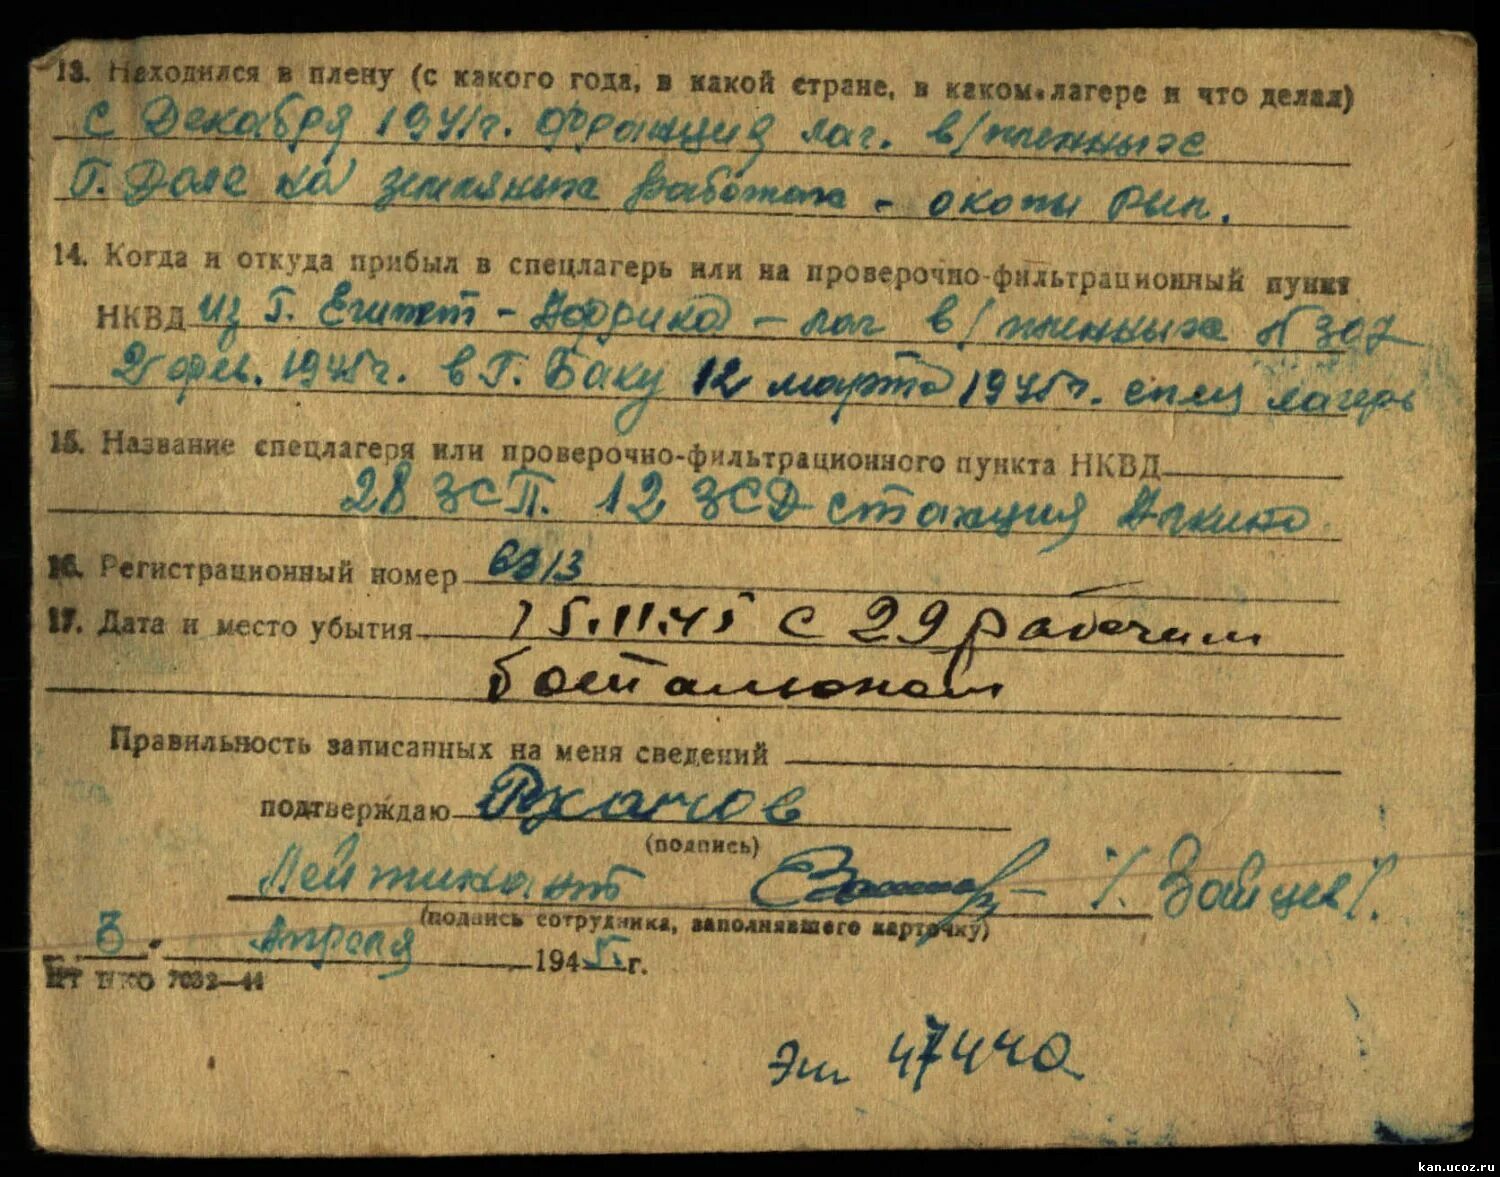 13. Находился в плену (с какого года, в какой стране, в каком лагере и что делал)
с Декабря 1941г. Франция лаг. в/пленных
г. Доле на земляных работах - окопы рыл.
14. Когда и откуда прибыл в спецлагерь или на проверочно-фильтрационный пункт
НКВД из г. Египет - Африка - лаг в/пленных N 307
2 фев. 1945г. в г. Баку 12 марта 1945г. спец лагерь
15. Название спецлагеря или проверочно-фильтрационного пункта НКВД
28 ЗСП. 12 ЗСД станция Аляты
16. Регистрационный номер 6313
17. Дата и место убытия 15.11.45 с 29 рабочим
батальоном
Правильность записанных на меня сведений
подтверждаю
(подпись)
Лейтенант /Зайцев/.
(подпись сотрудника, заполнявшего карточку)
3. Апреля 1945.г.
НТ НКО 7032—44
Эш 47440
kan.ucoz.ru